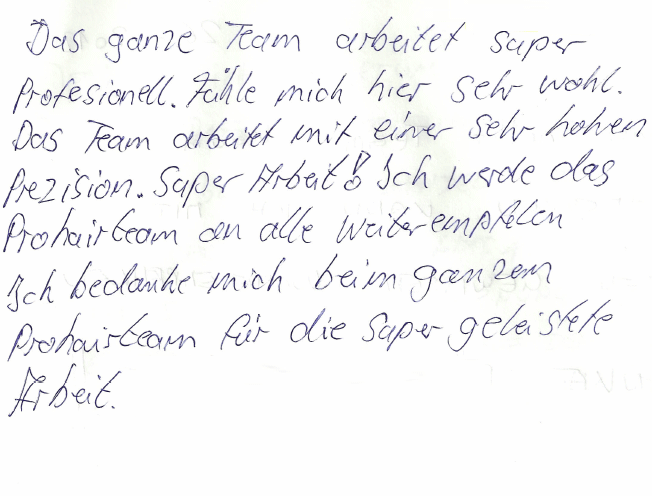 Das ganze Team arbeitet super
Profesionell. Fühle mich hier sehr wohl.
Das Team arbeitet mit einer sehr hohen
Prezision. Super Arbeit! Ich werde das
Prohairteam an alle weiterempfelen
Ich bedanke mich beim ganzem
Prohairteam für die super geleistete
Arbeit.